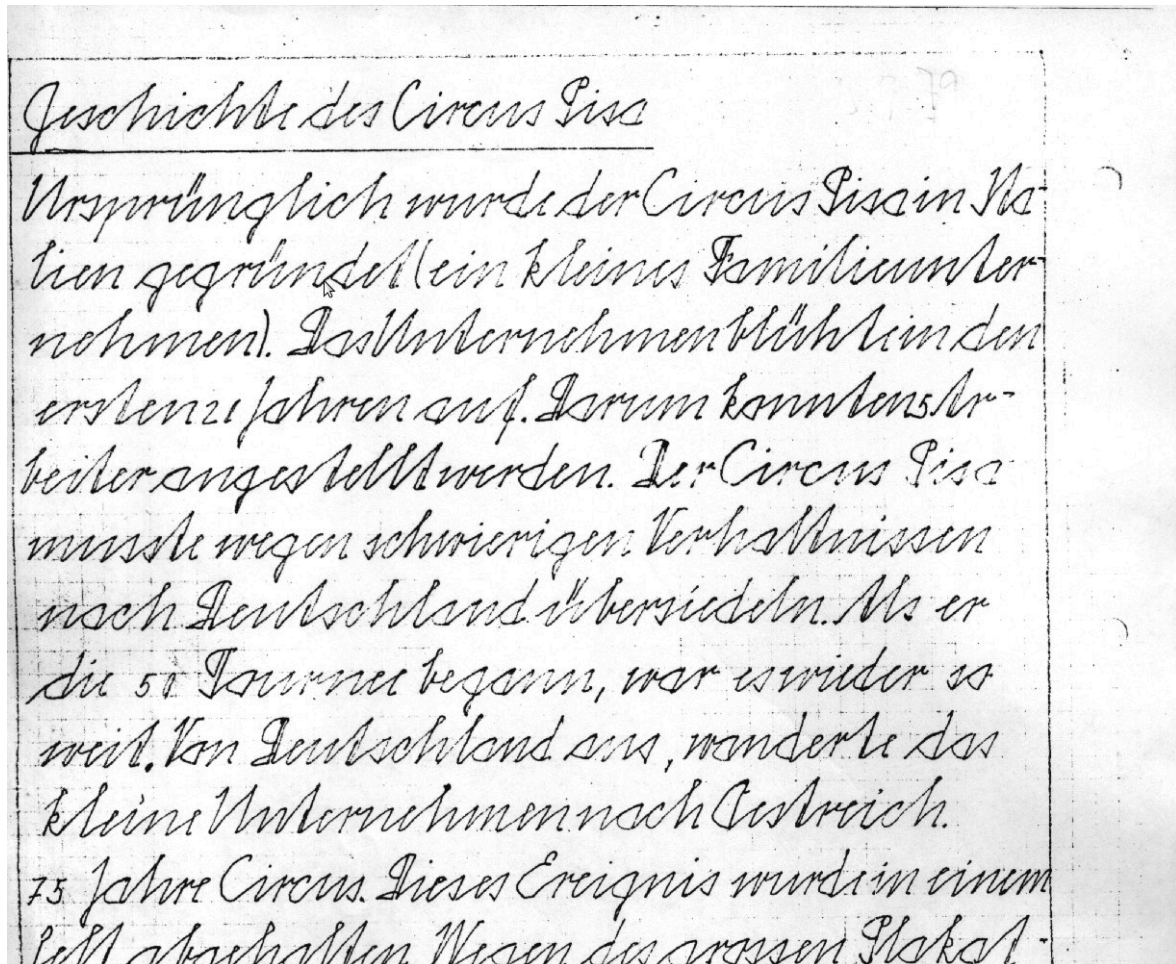 Geschichte des Circus Pisa
Ursprünglich wurde der Circus Pisa in Ita-
lien gegründet (ein kleines Familienunter-
nehmen). Das Unternehmen blühte in den
ersten 21 Jahren auf. Darum konnten 5 Ar-
beiter angestellt werden. Der Circus Pisa
musste wegen schwierigen Verhältnissen
nach Deutschland übersiedeln. Als er
die 50 Tournee begann, war es wieder so
weit. Von Deutschland aus, wanderte das
kleine Unternehmen nach Oestreich.
75 Jahre Circus. Dieses Ereignis wurde in einem
Zelt abgehalten. Wegen des grossen Plakat-